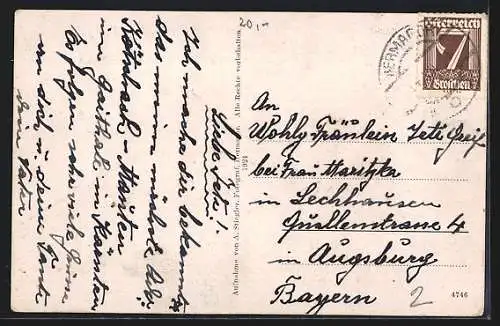 20,-
Liebe Jeti!
Ich mache dir bekannt
das meine nächste Adr.
Kötschach-Mauten
im Gailthale in Kärnten
Es folgen sehr viele Grüsse
an dich u. deine Tante
dein Vater
Aufnahme von A. Stiegler, Fotograf, Hermagor. Alle Rechte vorbehalten.
1921
HERMAGOR
Österreich
7
Groschen
An
Wohlg Fräulein Jeti Greif
bei Frau Maritzka
in Lechhausen
Quellenstrasse 4
in Augsburg
Bayern
2
4746